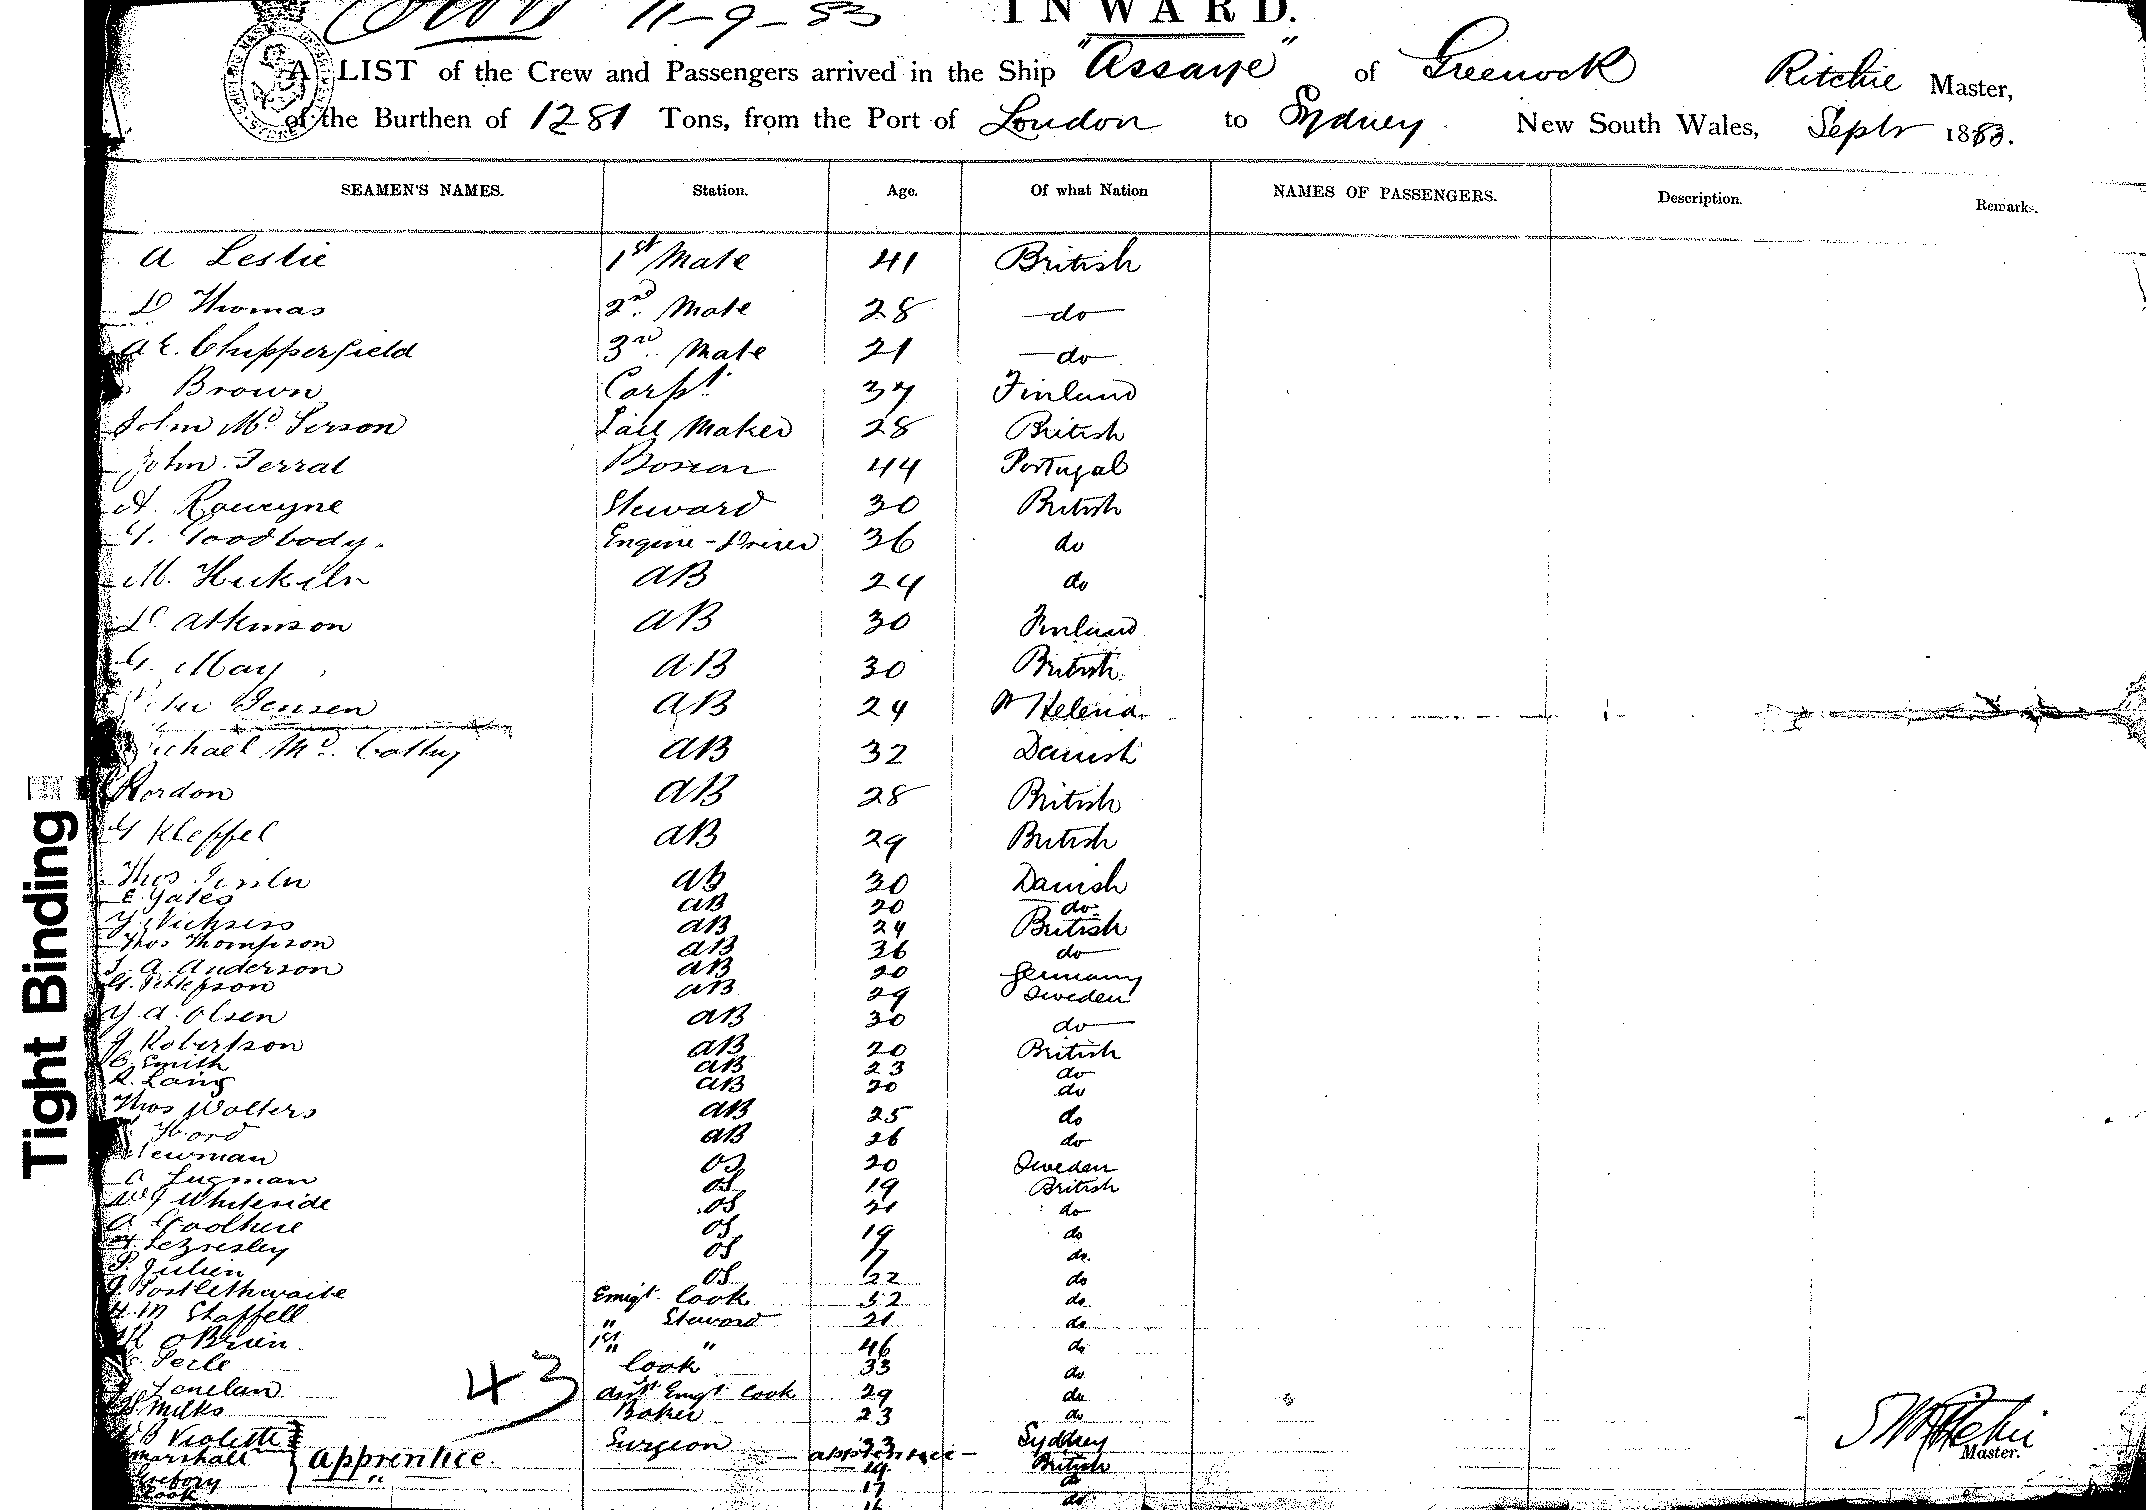 11-9-83 INWARD.
A LIST of the Crew and Passengers arrived in the Ship "Assaye" of Greenock Ritchie Master,
of the Burthen of 1281 Tons, from the Port of London to Sydney New South Wales, Septr 1883.
SEAMEN'S NAMES. Station. Age. Of what Nation NAMES OF PASSENGERS. Description. Remarks.
A Leslie 1st Mate 41 British
D Thomas 2nd Mate 28 do
A E. Chipperfield 3rd Mate 21 do
Brown Carpt. 37 Finland
John Mc Ferson Sail Maker 28 British
John Ferral Bosun 44 Portugal
A. Raweyne Steward 30 British
G. Goodbody. Engine-Driver 36 do
M. AB 24 do
Atkinson AB 30 Finland
G. May AB 30 British
Jensen AB 24 St Helena
Michael Mc Cathy AB 32 Danish
Gordon AB 28 British
G Kleffel AB 29 British
Thos AB 30 Danish
E. Yates AB 20 do
AB 24 British
Thos Thompson AB 36 do
J. A. Anderson AB 20 Germany
G. AB 29 Sweden
Y. A. Olsen AB 30 do
J Robertson AB 20 British
C. Smith AB 23 do
R. Laing AB 20 do
Thos Wolters AB 25 do
Ford AB 26 do
Newman OS 20 Sweden
A OS 19 British
W J Whiteside OS 21 do
A OS 19 do
F. Lezresley OS 17 do
P. Julien OS 22 do
J. Postlethwaite Emigt. Cook 52 do
H. M Staffell " Steward 21 do
O'Brien 1st " " 46 do
Perle Cook 33 do
Lenelan Asst Emigt Cook 29 do
W. Milks Baker 23 do
43
B Violette Surgeon 33 Sydney
Marshall apprentice apprentice 19 British
" 17 do
Cook 16 do
Ritchie
Master.
Tight Binding